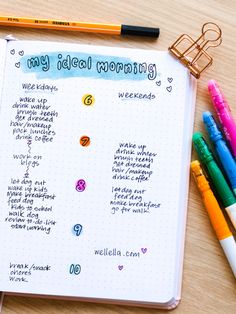 my ideal morning
weekdays
weekends
wake up
drink water
brush teeth
get dressed
hair/makeup
pack lunches
drink coffee
6
7
work on
blogs
wake up
drink water
brush teeth
get dressed
hair/makeup
drink coffee
let dog out
wake up kids
make breakfast
feed dog
kids to school
walk dog
review to-do list
start working
8
let dog out
feed dog
make breakfast
go for walk
9
wellella.com
break/snack
chores
work
10